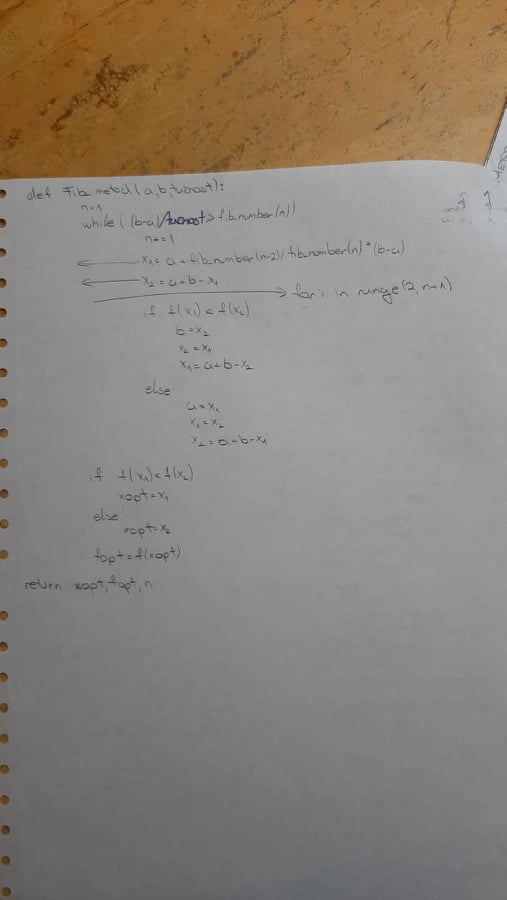 def Fib_metod(a,b,tacnost):
n=1
while((b-a)/tacnost > fib_number(n))
n+=1
x₁= a + fib_number(n-2)/fib_number(n)*(b-a)
x₂ = a+b-x₁
for i in range(2, n+1)
if f(x₁) < f(x₂)
b=x₂
x₂=x₁
x₁=a+b-x₂
else
a=x₁
x₁=x₂
x₂=a+b-x₁
if f(x₁)<f(x₂)
xopt=x₁
else
xopt=x₂
fopt=f(xopt)
return xopt, fopt, n